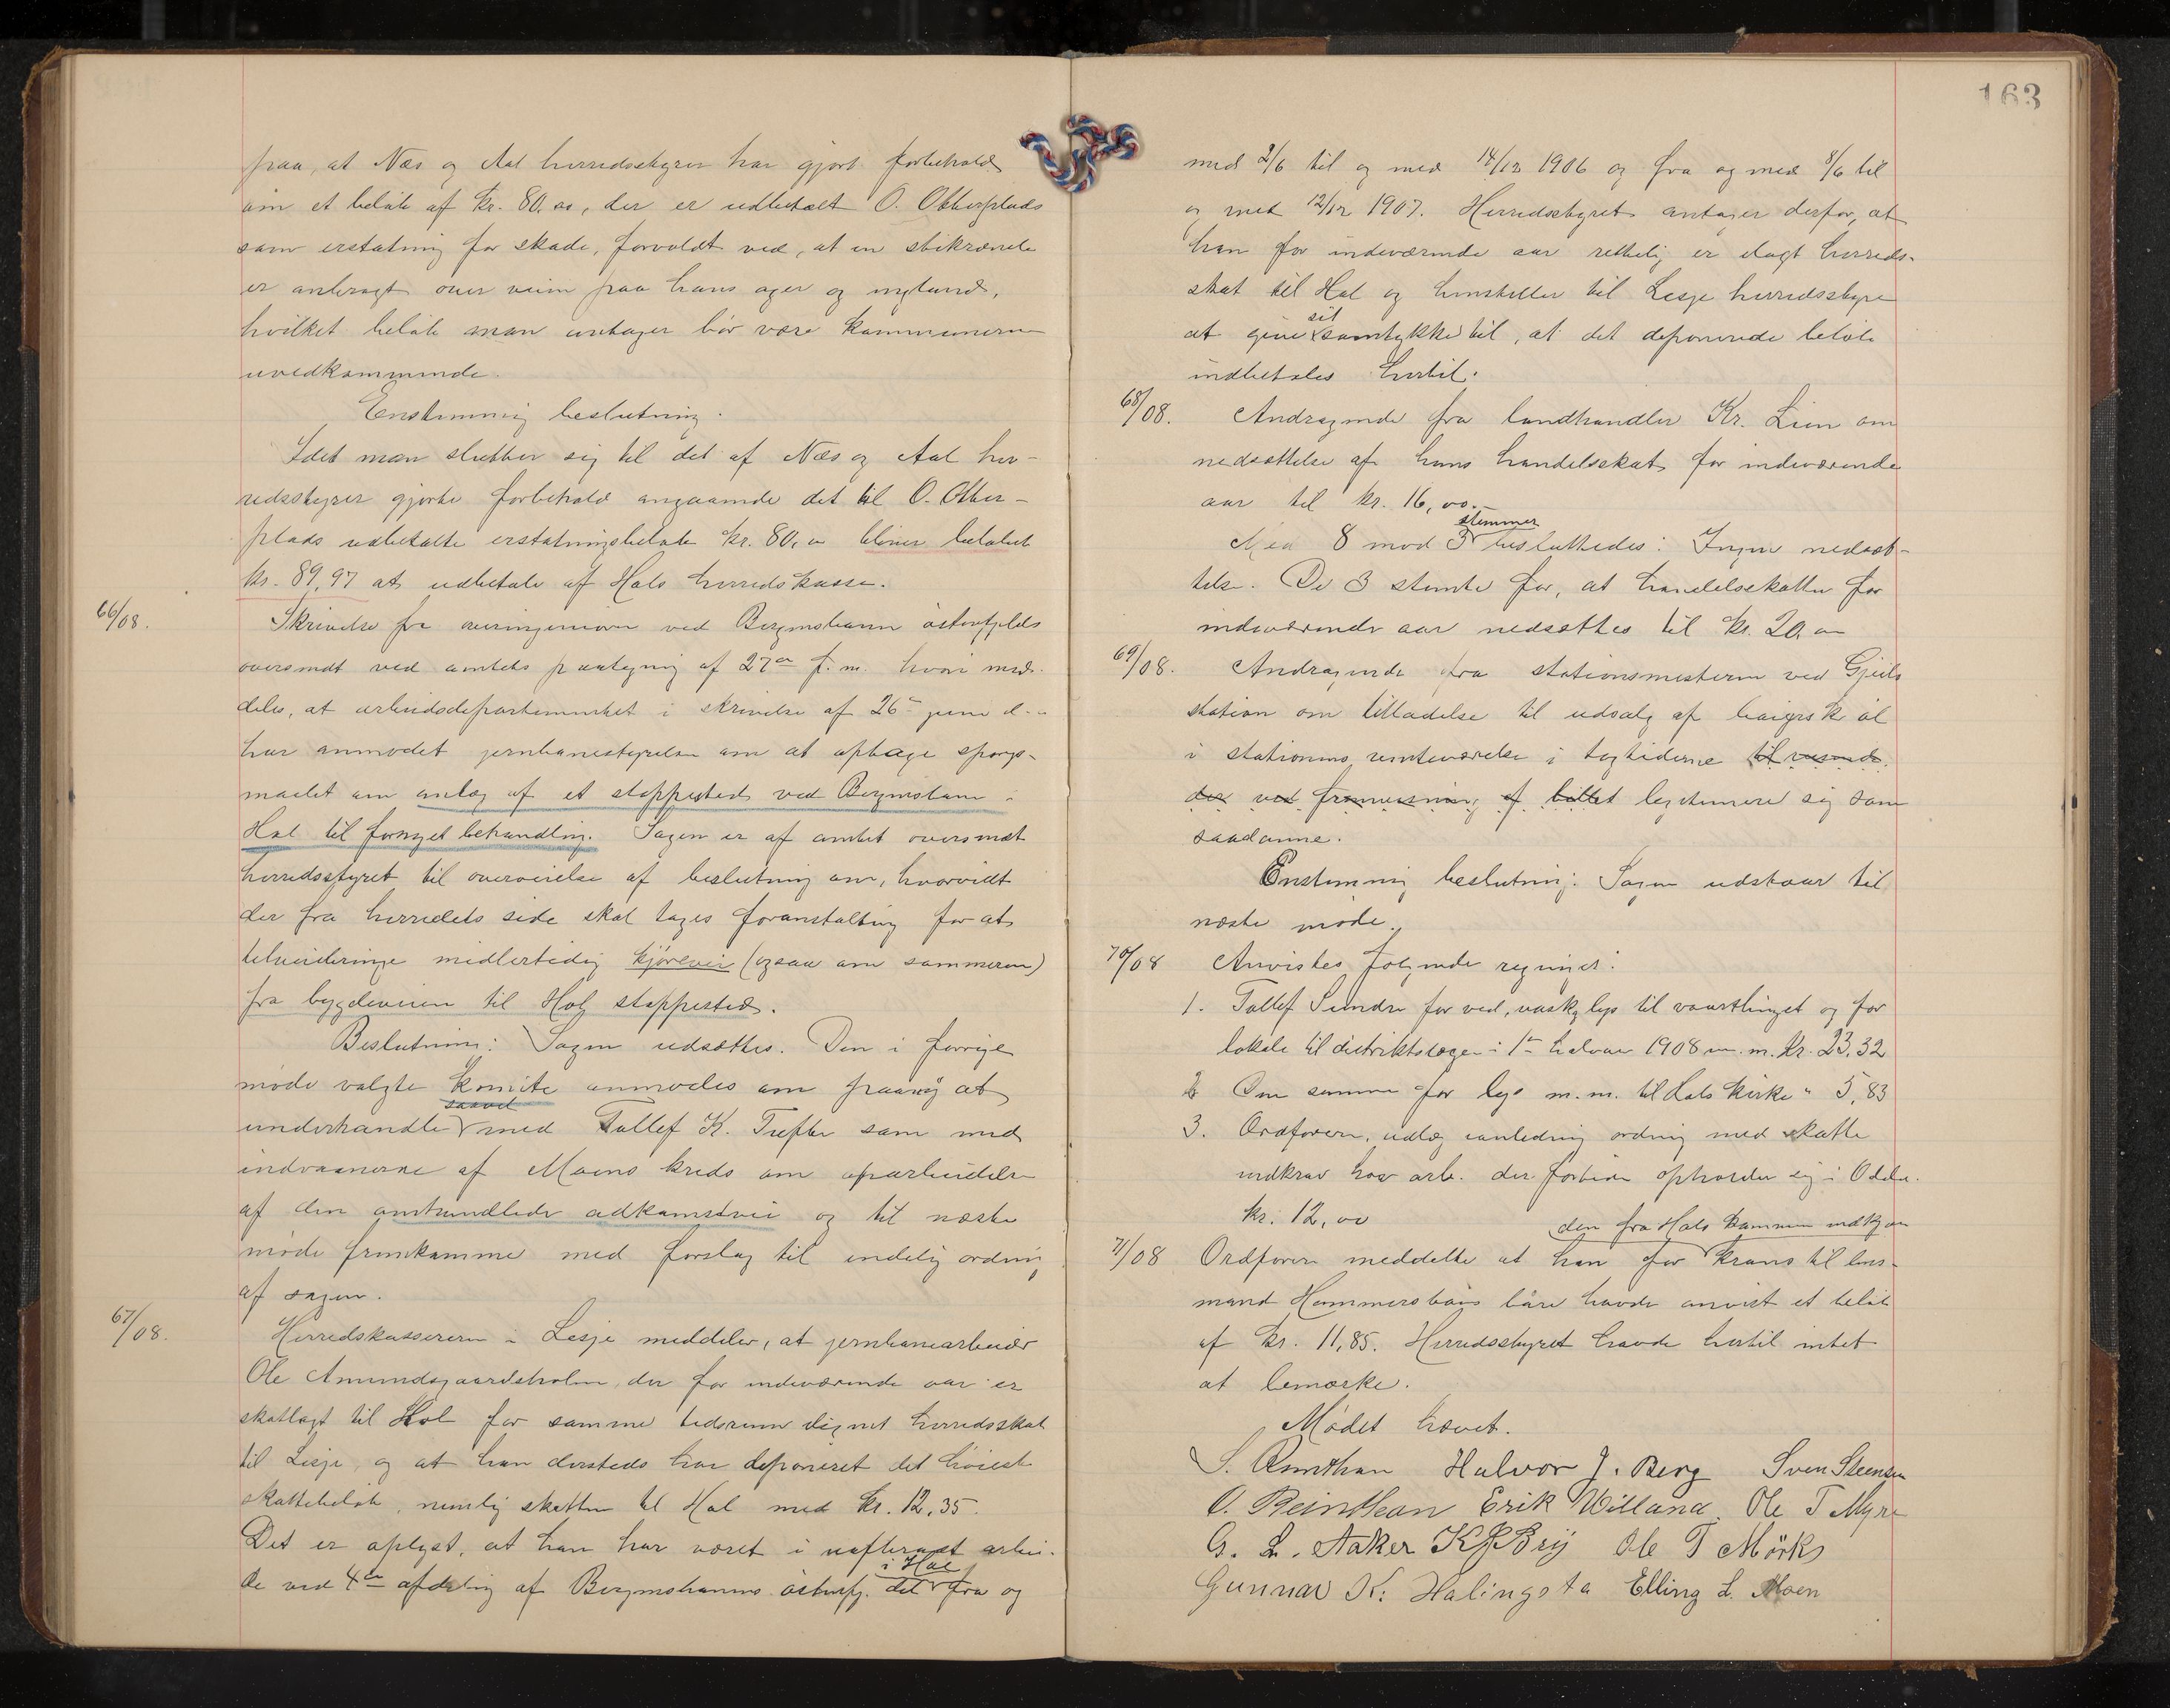 163
paa, at Næs og Aal herredsstyrer har gjort forbehold
om et beløb af kr. 80.00, der er udbetalt O. Otterplads
som erstatning for skade, forvoldt ved, at en stikrænde
er anbragt over veien paa hans ager og england,
hvilket beløb man antager bör være kommunerne
uvedkommende.
Enstemmig beslutning.
Idet man slutter sig til det af Næs og Aal her-
redsstyrer gjorte forbehold angaaende det til O. Otter-
plads udbetalte erstatningsbeløb kr. 80,00 bliver beløbet
kr. 89,97 at udbetale af Hols herredskasse.
66/08.
Skrivelse fra overingeniøren ved Bergensbanen østenfjelds
oversendt ved amtets paategning af 27de f. m. hvori med-
deles, at arbeidsdepartementet i skrivelse af 26de juni d. a.
har anmodet jernbanestyrelsen om at optage spørgs-
maalet om anlæg af et stoppested ved Bergensbanen i
Hol til fornyet behandling. Sagen er af amtet oversendt
herredsstyret til overveielse af beslutning om, hvorvidt
der fra herredets side skal tages foranstaltning for at
tilveiebringe midlertidig kjørevei (ogsaa om sommeren)
fra bygdeveien til Hol stoppested.
Beslutning: Sagen udsættes. Den i forrige
møde valgte komite anmodes om paany at
underhandle saavel med Tollef K. Tufte som med
indvaanerne af Moens kreds om oparbeidelse
af den omhandlede adkomstvei og til næste
møde fremkomme med forslag til endelig ordning
af sagen.
67/08.
Herredskassereren i Lesje meddeler, at jernbanearbeider
Ole Amundsgaardsholen, der for indeværende aar er
skatlagt til Hol for samme tidsrum lignet herredsskat
til Lesje, og at han dersteds har deponeret det høieste
skattebeløb, nemlig skatten til Hol med kr. 12,35.
Det er oplyst, at han har været i uafbrudt arbei-
de ved 4de afdeling af Bergensbanens østenfj. del i Hol fra og
med 2/6 til og med 14/12 1906 og fra og med 8/6 til
og med 12/12 1907. Herredsstyret antager derfor, at
han for indeværende aar rettelig er ilagt herreds-
skat til Hol og henstiller til Lesje herredsstyre
at give sit samtykke til, at det deponerede beløb
indbetales hertil.
68/08.
Andragende fra landhandler Kr. Lien om
nedsættelse af hans handelsskat for indeværende
aar til kr. 16,00.
Med 8 mod 3 stemmer besluttedes: Ingen nedsæt-
telse. De 3 stemte for, at handelsskatten for
indeværende aar nedsættes til kr. 20.00
69/08.
Andragende fra stationsmesteren ved Gjeilo
station om tilladelse til udsalg af baiersk øl
i stationens venteværelse i togtiderne til reisende
der ved fremvisning af billet legitimere sig som
saadanne.
Enstemmig beslutning: Sagen udstaar til
næste møde.
70/08
Anvistes følgende regninger:
1. Tollef Sundre for ved, vask og lys til vaartinget og for
lokale til distriktslægen i 1ste halvaar 1908 m. m. kr. 23,32
2. Den samme for lys m. m. til Hols kirke " 5,83
3. Ordføreren, udlæg i anledning ordning med skatte
indkrav hos arb. der fortiden opholder sig i Odda.
kr. 12,00
71/08
Ordføreren meddelte at han for den fra Hols kommune indkjøbte krans til lens-
mand Hammersbøis båre havde anvist et beløb
af kr. 11,85. Herredsstyret havde hertil intet
at bemærke.
Mødet hævet.
Halvor J. Berg Sven Steensen
O. Reinthon Erik Villand. Ole T Myre
G. L. Aaker Ole T Mörk
Gunnar K. Halingsta Elling L. Moen